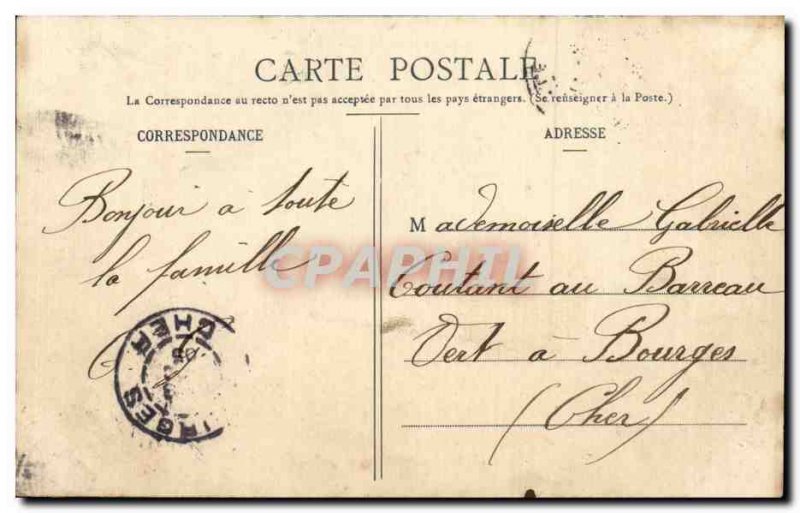 CARTE POSTALE
La Correspondance au recto n'est pas acceptée par tous les pays étrangers. (Se renseigner à la Poste.)
CORRESPONDANCE
Bonjour à toute
la famille
ADRESSE
Mademoiselle Gabrielle
Coutant au Barreau
Vert à Bourges
(Cher)
CPAPHIL
CHER